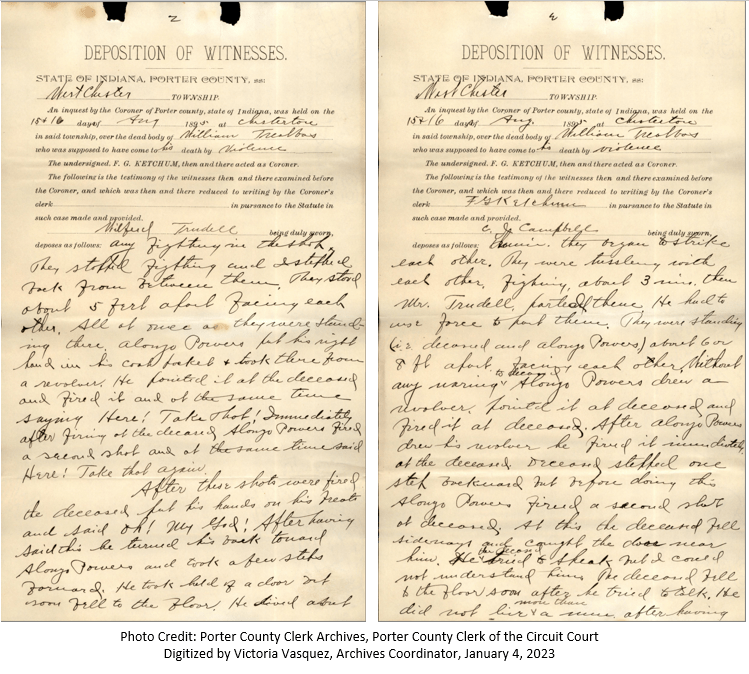 2
DEPOSITION OF WITNESSES.
STATE OF INDIANA, PORTER COUNTY, ss:
West Chester TOWNSHIP.
An inquest by the Coroner of Porter county, state of Indiana, was held on the
15+16 days of Aug 1895 at Chesterton
in said township, over the dead body of William
who was supposed to have come to his death by violence
The undersigned. F. G. KETCHUM, then and there acted as Coroner.
The following is the testimony of the witnesses then and there examined before
the Coroner, and which was then and there reduced to writing by the Coroner's
clerk in pursuance to the Statute in
such case made and provided.
Wilfred Trudell being duly sworn,
deposes as follows: any fighting in the shop.
They stopped fighting and I stepped
back from between them. They stood
about 5 feet apart facing each
other. All at once as they were stand-
ing there, Alongo Powers put his right
hand in his coat paket + took there from
a revolver. He pointed it at the deceased
and fired it and at the same time
saying Here! Take that! Immediately
after firing at the deceased, Alongo Powers fired
a second shot and at the same time said
Here! Take that again.
After these shots were fired
the deceased put his hands on his
and said oh! My God! After having
said this he turned his back toward
Alongo Powers and took a few steps
forward. He took hold of a door but
soon fell to the floor. He lived about
3
DEPOSITION OF WITNESSES.
STATE OF INDIANA, PORTER COUNTY, ss:
West Chester TOWNSHIP.
An inquest by the Coroner of Porter county, state of Indiana, was held on the
15+16 days of Aug. 1895 at Chesterton
in said township, over the dead body of William
who was supposed to have come to his death by violence
The undersigned. F. G. KETCHUM, then and there acted as Coroner.
The following is the testimony of the witnesses then and there examined before
the Coroner, and which was then and there reduced to writing by the Coroner's
clerk F G Ketchum in pursuance to the Statute in
such case made and provided.
E. J. Campbell being duly sworn,
deposes as follows: they began to strike
each other. They were tussling with
each other, fighting, about 3 min. then
Mr. Trudell, parted them. He had to
use force to part them. They were standing
(i.e deceased and Alongo Powers) about 6 or
8 ft apart facing each other. Without
any warning to deceased Alongo Powers drew a
revolver. pointed it at deceased and
fired it at deceased. After Alongo Powers
drew his revolver he fired it immediately
at the deceased. Deceased stepped one
step backward but before doing this
Alongo Powers fired a second shot
at deceased. At this the deceased fell
sideways and caught the door near
him. the deceased tried to speak but I could
not understand him. The deceased fell
to the floor soon after he tried to talk. He
did not live more than a min. after having
Photo Credit: Porter County Clerk Archives, Porter County Clerk of the Circuit Court
Digitized by Victoria Vasquez, Archives Coordinator, January 4, 2023